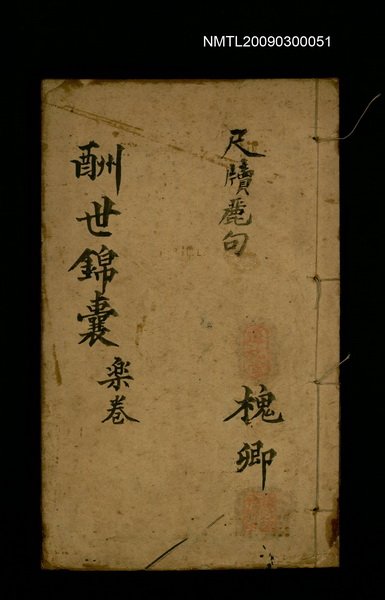 NMTL20090300051
尺牘麗句
槐卿
酬世錦囊
楽卷